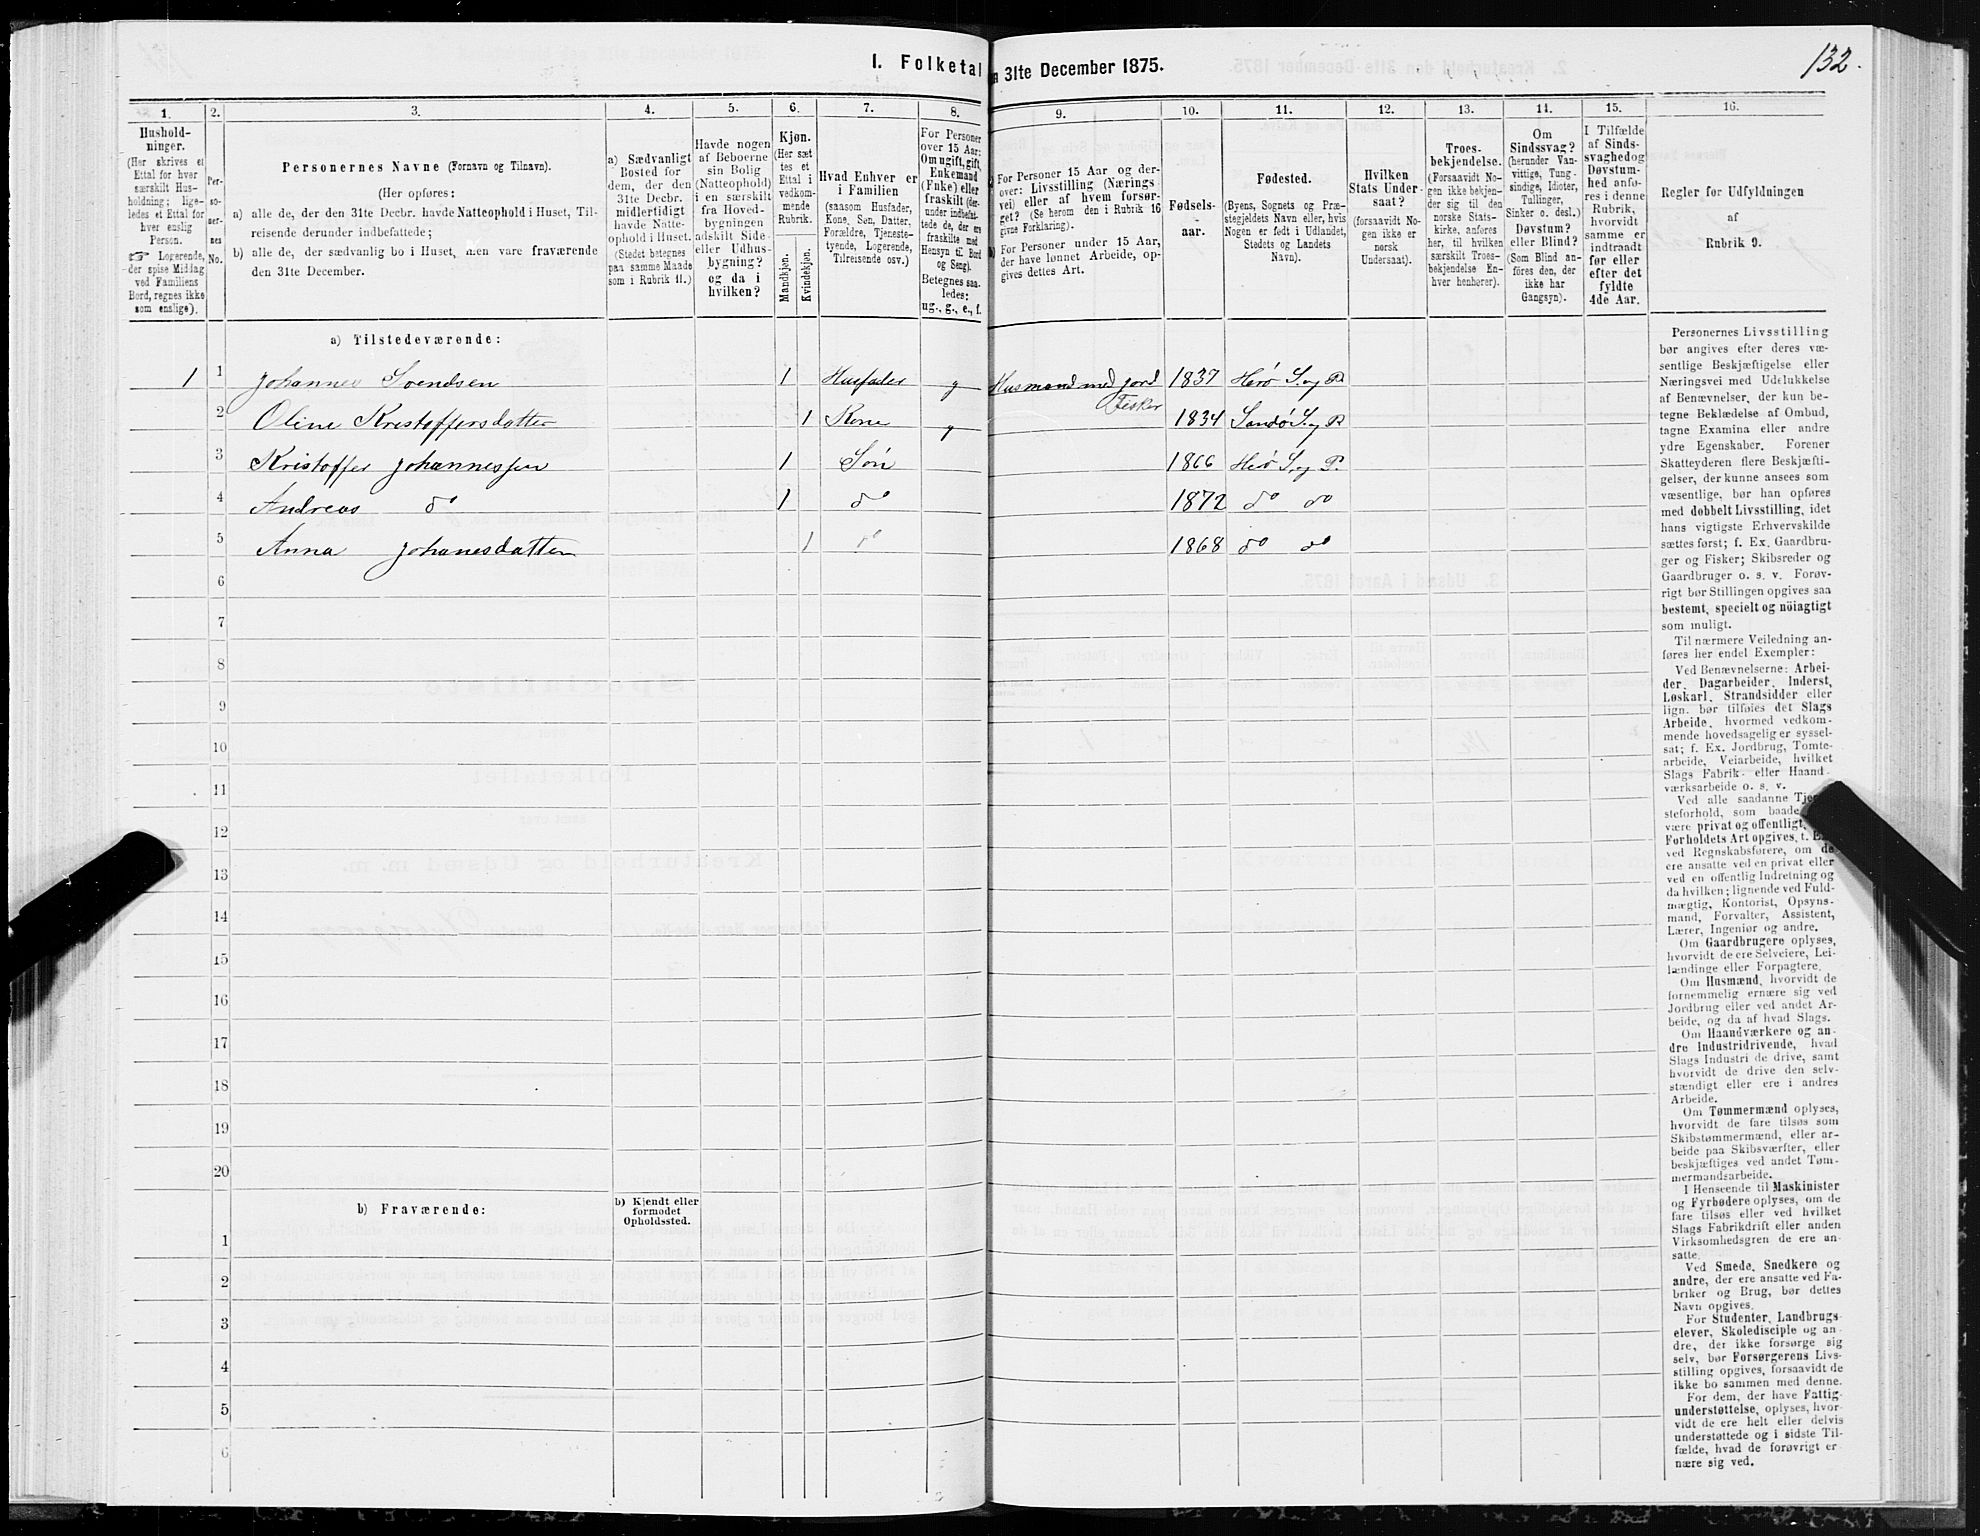 132.
I. Folketal
den 31te December 1875.
1.
2.
3.
4.
5.
6.
7.
8.
9.
10.
11.
12.
13.
14.
15.
16.
Hushold-
ninger.
(Her skrives et
Ettal for hver
særskilt Hus-
holdning; lige-
ledes et Ettal for
hver enslig
Person.
☞ Logerende,
der spise Middag
ved Familiens
Bord, regnes ikke
som enslige).
Per-
so-
ner-
nes
No.
Personernes Navne (Fornavn og Tilnavn).
(Her opføres:
a) alle de, der den 31te Decbr. havde Natteophold i Huset, Til-
reisende derunder indbefattede;
b) alle de, der sædvanlig bo i Huset, men vare fraværende
den 31te December.
a) Sædvanligt
Bosted for
dem, der den
31te Decbr.
midlertidigt
havde Natte-
ophold i Huset.
(Stedet betegnes
paa samme Maade
som i Rubrik 11.)
Havde nogen
af Beboerne
sin Bolig
(Natteophold)
i en særskilt
fra Hoved-
bygningen
adskilt Side-
eller Udhus-
bygning?
og da i
hvilken?
Kjøn.
(Her sæt-
tes et
Ettal i
vedkom-
mende
Rubrik.
Mandkjøn.
Kvindekjøn.
Hvad Enhver er
i Familien
(saasom Husfader,
Kone, Søn, Datter,
Forældre, Tjeneste-
tyende, Logerende,
Tilreisende osv.)
For Personer
over 15 Aar:
Om ugift, gift,
Enkemand
(Enke) eller
fraskilt (der-
under indbefat-
tede de, der ere
fraskilte med
Hensyn til Bord
og Seng).
Betegnes saa-
ledes:
ug., g., e., f.
a) For Personer 15 Aar og der-
over: Livsstilling (Nærings-
vei) eller af hvem forsør-
get? (Se herom den i Rubrik 16
givne Forklaring).
b) For Personer under 15 Aar,
der have lønnet Arbeide, op-
gives dettes Art.
Fødsels-
aar.
Fødested.
(Byens, Sognets og Præ-
stegjeldets Navn eller, hvis
Nogen er født i Udlandet,
Stedets og Landets
Navn).
Hvilken
Stats Under-
saat?
(forsaavidt No-
gen ikke er
norsk
Undersaat).
Troes-
bekjendelse.
(Forsaavidt No-
gen ikke bekjen-
der sig til den
norske Stats-
kirke, anføres
her, til hvilken
særskilt Troes-
bekjendelse En-
hver henhører).
Om
Sindssvag?
(herunder Van-
vittige, Tung-
sindige, Idioter,
Tullinger,
Sinker o. desl.)
Døvstum?
eller Blind?
(Som Blind an-
føres den, der
ikke har
Gangsyn).
I Tilfælde
af Sinds-
svaghed og
Døvstum-
hed anfø-
res i denne
Rubrik,
hvorvidt
samme er
indtraadt
før eller
efter det
fyldte
4de Aar.
Regler for Udfyldningen
af
Rubrik 9.
a) Tilstedeværende:
1 1 Johannes Svendsen 1 Husfader g Husmand med jord Fisker 1837 Herø S. og P.
2 Oline Kristoffersdatter 1 Kone g 1834 Sandø S. og P.
3 Kristoffer Johannessen 1 Søn 1866 Herø S. og P.
4 Andreas do 1 do 1872 do do
5 Anna Johanesdatter 1 do 1868 do do
6
7
8
9
10
11
12
13
14
15
16
17
18
19
20
b) Fraværende:
b) Kjendt eller
formodet
Opholdssted.
1
2
3
4
5
6
Personernes Livsstilling
bør angives efter deres væ-
sentlige Beskjæftigelse eller
Næringsvei med Udelukkelse
af Benævnelser, der kun be-
tegne Beklædelse af Ombud,
tagne Examina eller andre
ydre Egenskaber. Forener
Skatteyderen flere Beskjæfti-
gelser, der kunne ansees som
væsentlige, bør han opføres
med dobbelt Livsstilling, idet
hans vigtigste Erhvervskilde
sættes først; f. Ex. Gaardbru-
ger og Fisker; Skibsreder og
Gaardbruger o. s. v. Forøv-
rigt bør Stillingen opgives saa
bestemt, specielt og nöiagtigt
som muligt.
Til nærmere Veiledning an-
føres her endel Exempler:
Ved Benævnelserne: Arbei-
der, Dagarbeider, Inderst,
Løskarl, Strandsidder eller
lign. bør tilføies det Slags
Arbeide, hvormed vedkom-
mende hovedsagelig er syssel-
sat; f. Ex. Jordbrug, Tomte-
arbeide, Veiarbeide, hvilket
Slags Fabrik- eller Haand-
værksarbeide o. s. v.
Ved alle saadanne Tje-
steforhold, som baade
være privat og offentligt,
Forholdets Art opgives, t. Ex.
ved Regnskabsførere, om de
ere ansatte ved en privat eller
ved en offentlig Indretning og
da hvilken; lignende ved Fuld-
mægtig, Kontorist, Opsyns-
mand, Forvalter, Assistent,
Lærer, Ingeniør og andre.
Om Gaardbrugere oplyses,
hvorvidt de ere Selveiere, Lei-
lændinge eller Forpagtere.
Om Husmænd, hvorvidt de
fornemmelig ernære sig ved
Jordbrug eller ved andet Ar-
beide, og da af hvad Slags.
Om Haandværkere og an-
dre Industridrivende, hvad
Slags Industri de drive, samt
hvorvidt de drive den selv-
stændigt eller ere i andres
Arbeide.
Om Tømmermænd oplyses,
hvorvidt de fare tilsøs som
Skibstømmermænd, eller ar-
beide paa Skibsværfter, eller
beskjæftiges ved andet Tøm-
mermandsarbeide.
I Henseende til Maskinister
og Fyrbødere oplyses, om de
fare tilsøs eller ved hvilket
Slags Fabrikdrift eller anden
Virksomhedsgren de ere an-
satte.
Ved Smede, Snedkere og
andre, der ere ansatte ved Fa-
briker og Brug, bør dettes
Navn opgives.
For Studenter, Landbrugs-
elever, Skoledisciple og an-
dre, der ikke forsørge sig
selv, bør Forsørgerens Livs-
stilling opgives, forsaavidt de
ikke bo sammen med denne.
For dem, der have Fattig-
understøttelse, oplyses, hvor-
vidt de ere helt eller delvis
understøttede og i sidste Til-
fælde, hvad de forøvrigt er-
nære sig ved.